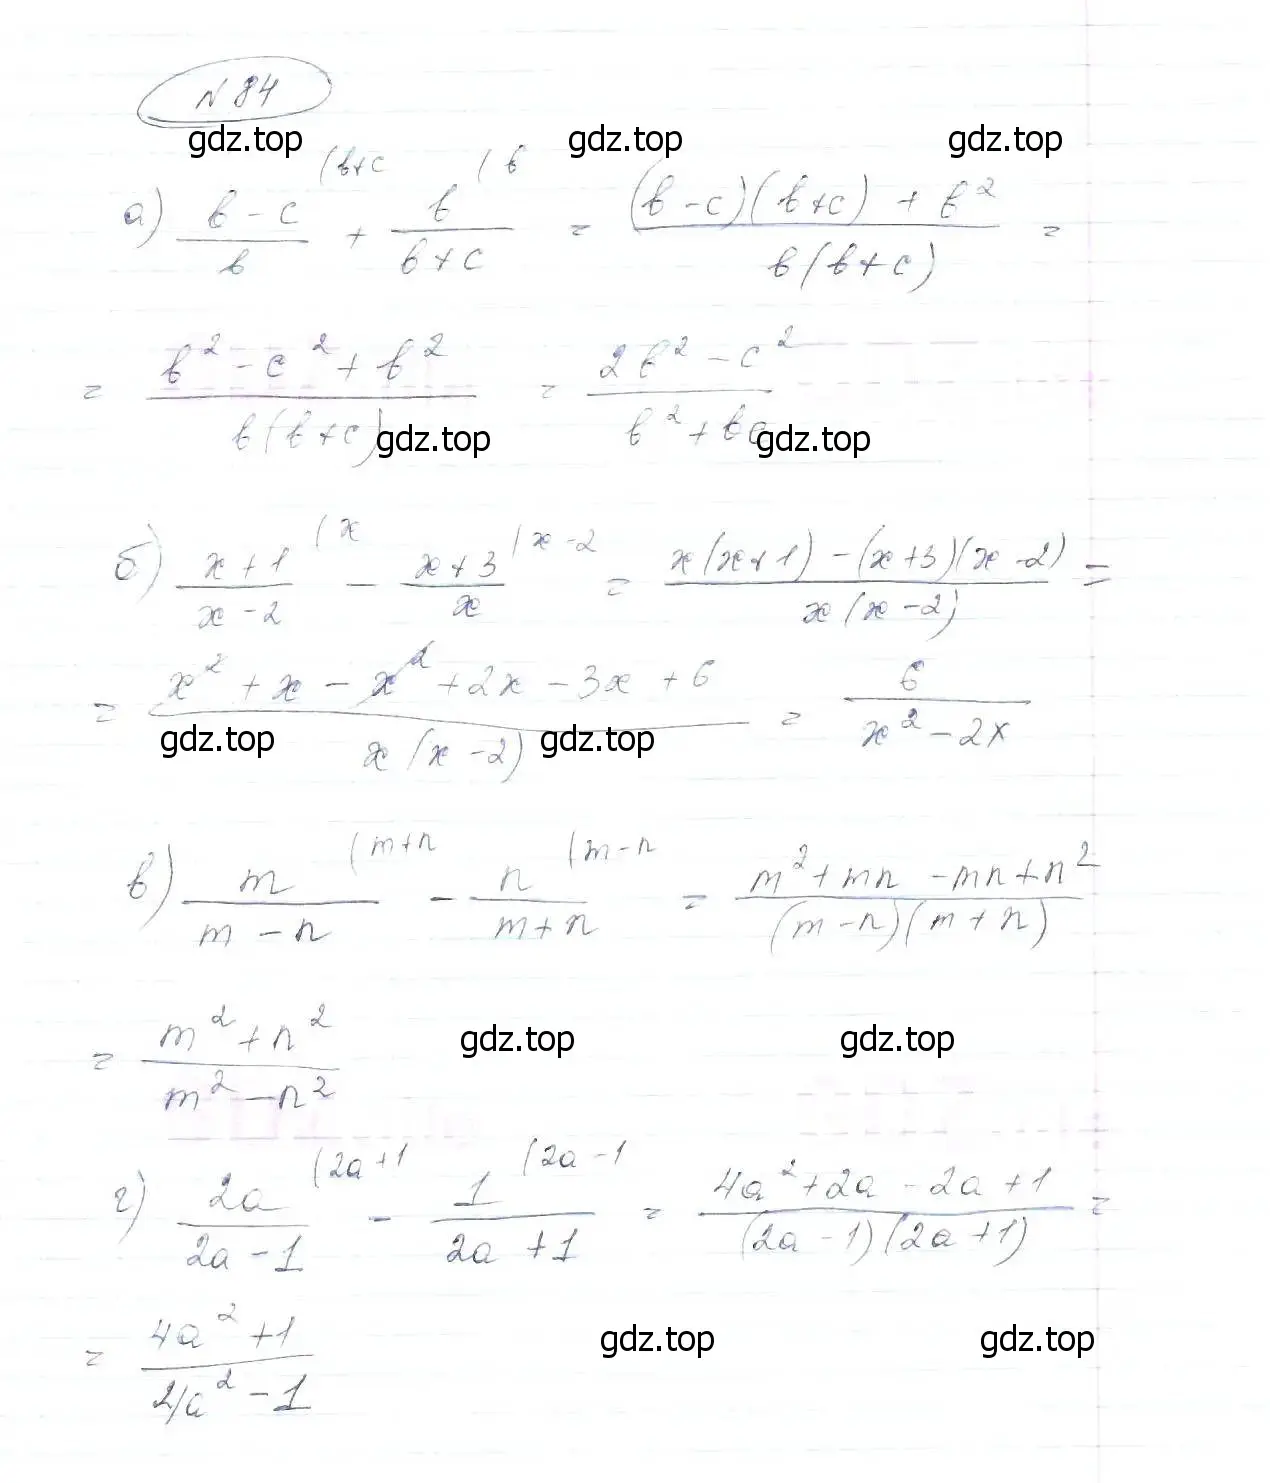 N 84
gdz.top gdz.top gdz.top
а) (b-c)/b (b+c + b/(b+c) (b = ((b-c)(b+c) + b²)/(b(b+c)) =
= (b² - c² + b²)/(b(b+c)) = (2b² - c²)/(b² + bc)
gdz.top gdz.top
б) (x+1)/(x-2) (x - (x+3)/x (x-2 = (x(x+1) - (x+3)(x-2))/(x(x-2)) =
= (x² + x - x² + 2x - 3x + 6)/(x(x-2)) = 6/(x² - 2x)
gdz.top gdz.top
в) m/(m-n) (m+n - n/(m+n) (m-n = (m² + mn - mn + n²)/((m-n)(m+n))
= (m² + n²)/(m² - n²)
gdz.top gdz.top
г) 2a/(2a-1) (2a+1 - 1/(2a+1) (2a-1 = (4a² + 2a - 2a + 1)/((2a-1)(2a+1)) =
= (4a² + 1)/(4a² - 1)
gdz.top gdz.top